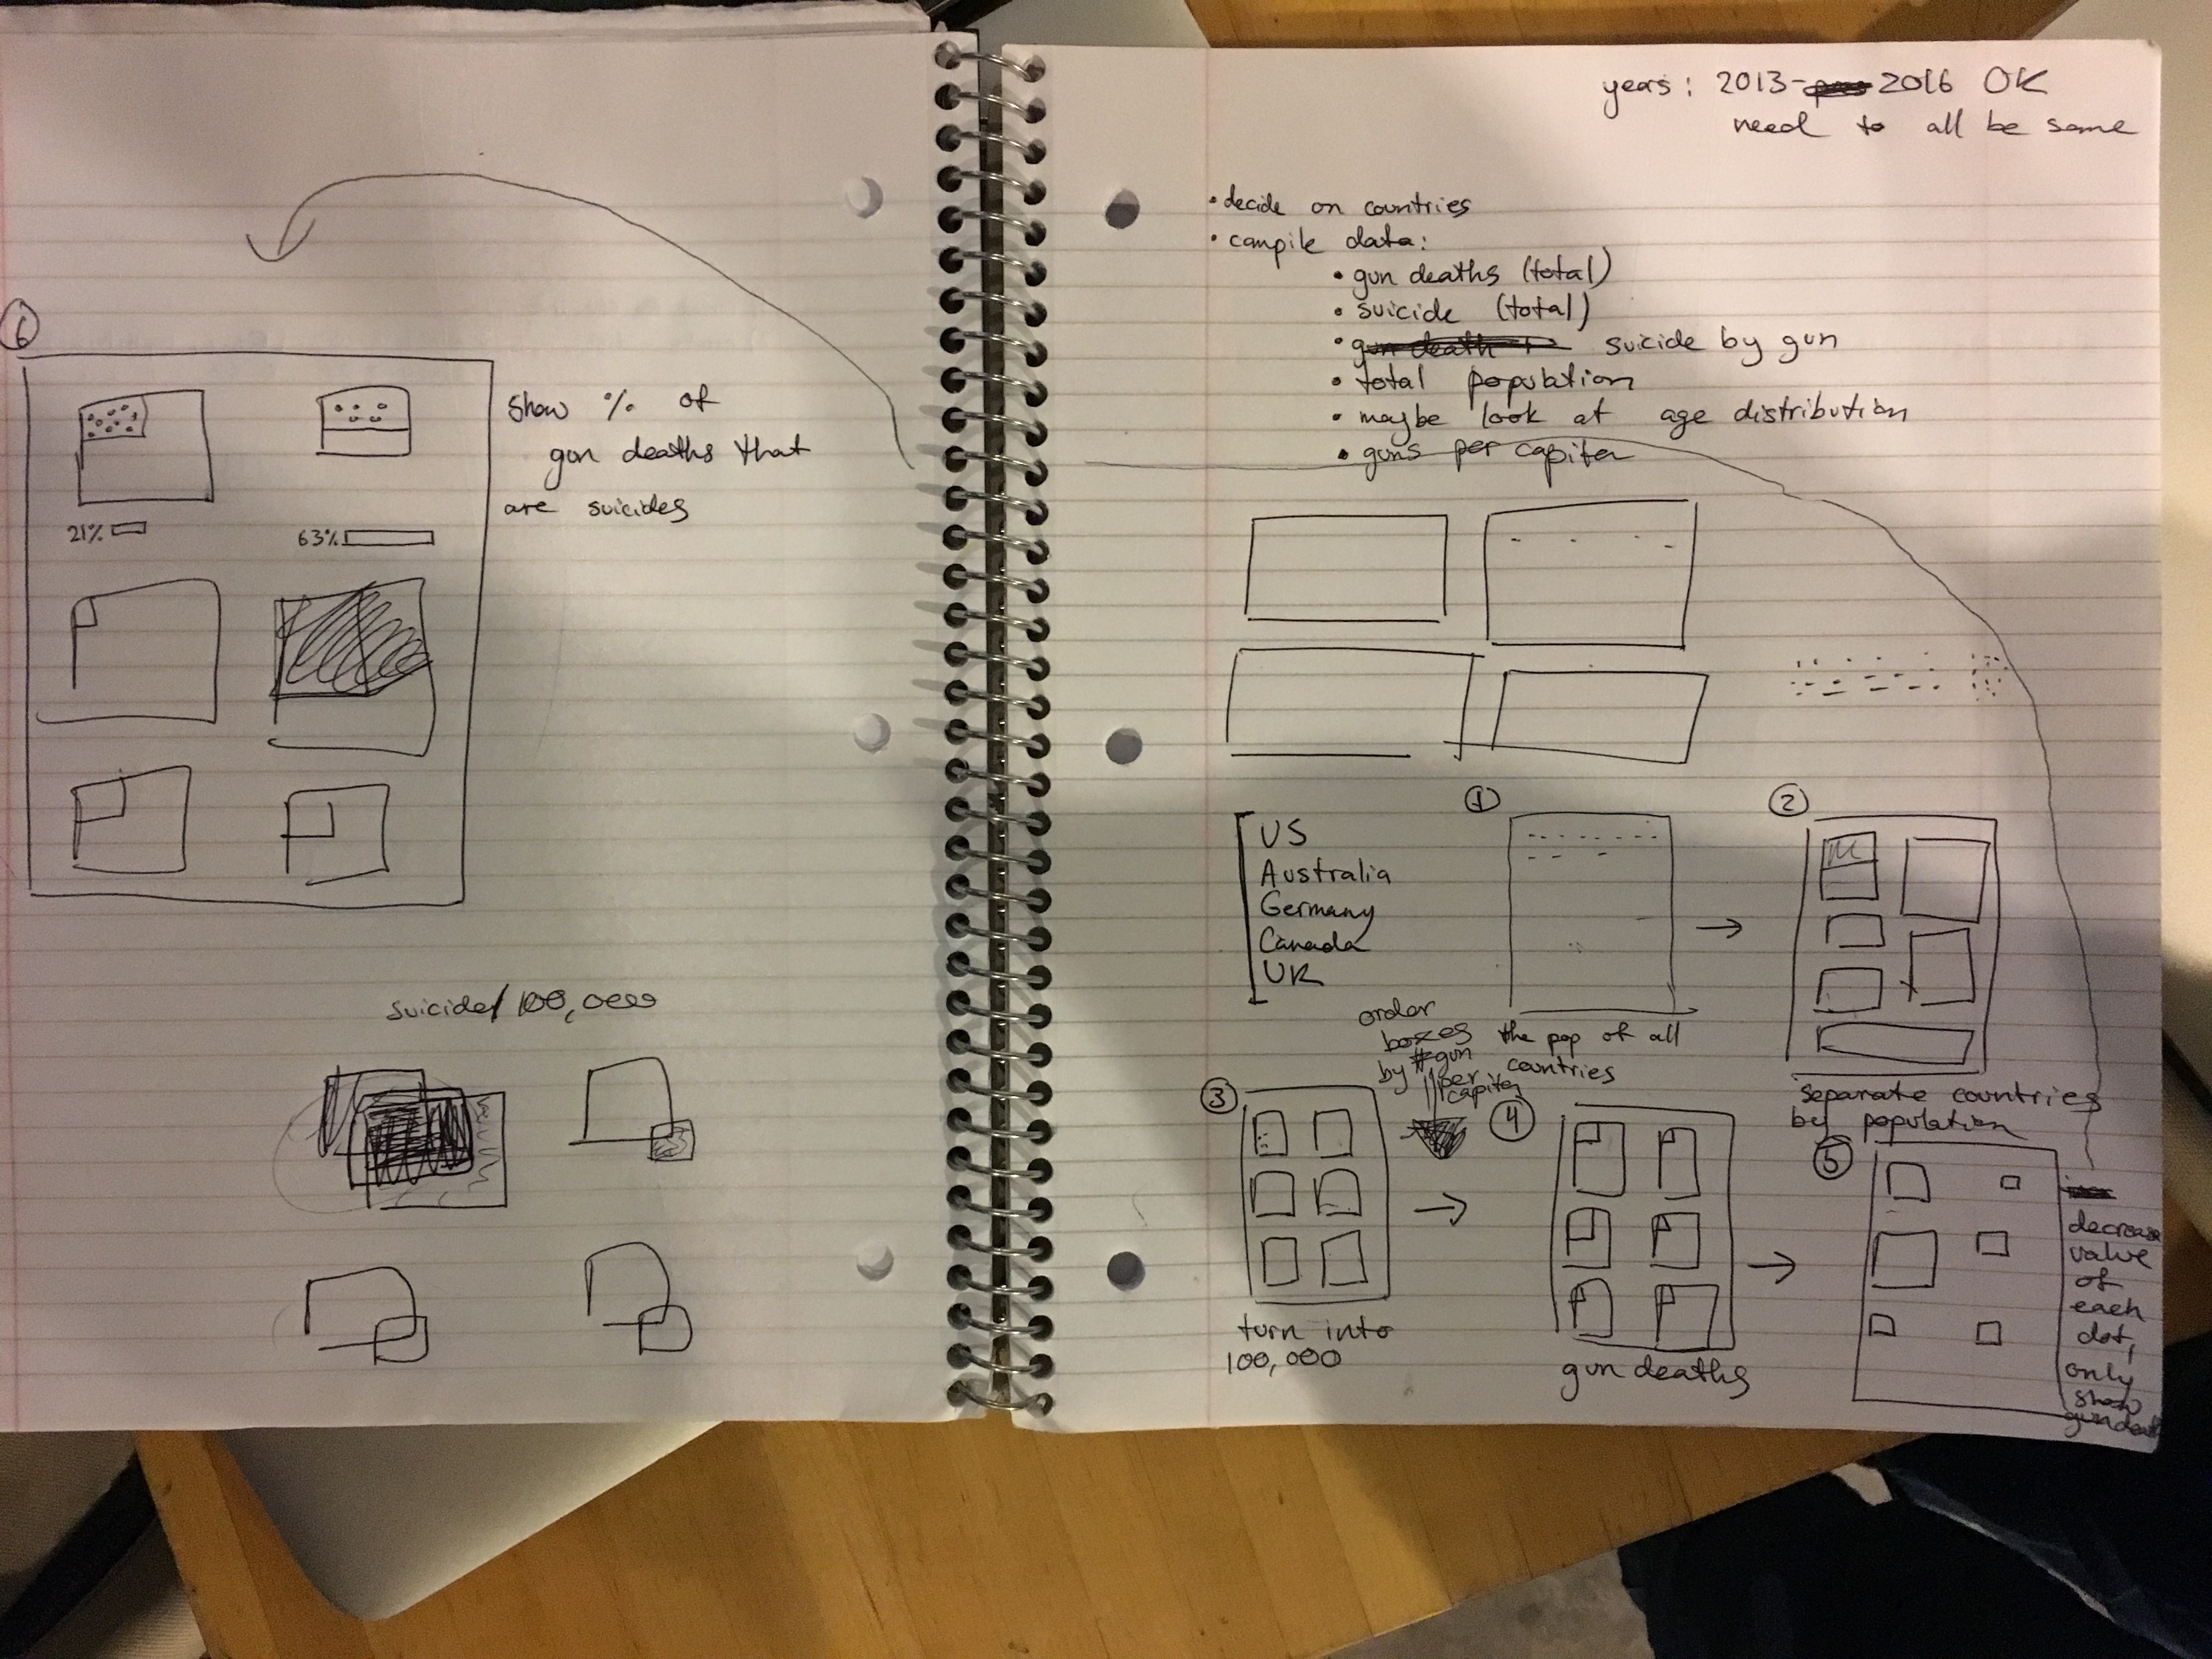 6
show % of
gun deaths that
are suicides
21%
63%
suicide/100,000
years: 2013-2016 OK
need to all be same
• decide on countries
• compile data:
• gun deaths (total)
• suicide (total)
• gun death suicide by gun
• total population
• maybe look at age distribution
• guns per capita
US
Australia
Germany
Canada
UK
1
the pop of all
countries
2
separate countries
by population
order
boxes
by #gun
per
capita
3
turn into
100,000
4
gun deaths
5
decrease
value
of
each
dot,
only
show
gun death